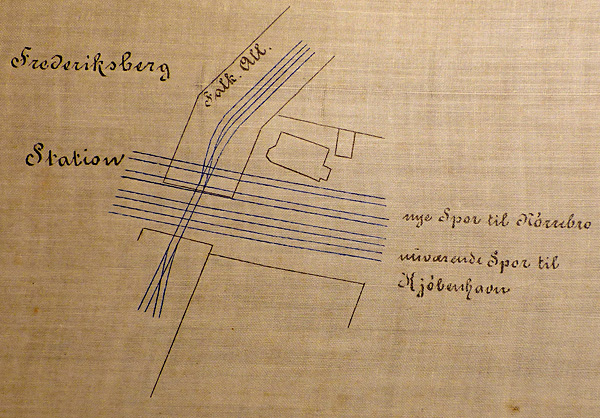 Frederiksberg
Falk. All.
Station
nye Spor til Nörrebro
nuværende Spor til
Kjöbenhavn